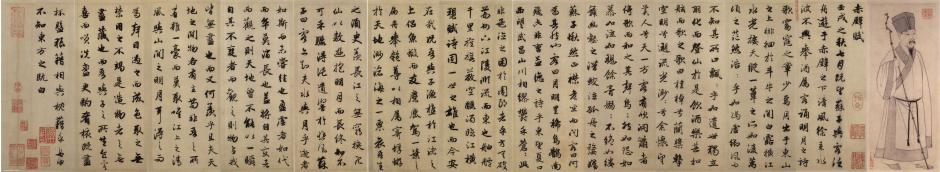 赤壁賦
壬戌之秋七月既望蘇子與客泛
舟遊于赤壁之下清風徐來水
波不興舉酒屬客誦明月之詩
歌窈窕之章少焉月出於東山
之上徘徊於斗牛之間白露橫江
水光接天縱一葦之所如凌萬
頃之茫然浩浩乎如馮虛御風而
不知其所止飄飄乎如遺世獨立
羽化而登仙於是飲酒樂甚扣
舷而歌之歌曰桂棹兮蘭槳擊
空明兮泝流光渺渺兮余懷望
美人兮天一方客有吹洞簫者
倚歌而和之其聲嗚嗚然如怨
如慕如泣如訴餘音嫋嫋不絕如縷
舞幽壑之潛蛟泣孤舟之嫠婦
蘇子愀然正襟危坐而問客曰何
為其然也客曰月明星稀烏鵲南
飛此非曹孟德之詩乎東望夏口
西望武昌山川相繆鬱乎蒼蒼此
非孟德之困於周郎者乎方其破
荊州下江陵順流而東也舳艫
千里旌旗蔽空釃酒臨江橫
槊賦詩固一世之雄也而今安
在哉況吾與子漁樵於江渚之
上侶魚蝦而友麋鹿駕一葉之
扁舟舉匏尊以相屬寄蜉蝣
於天地渺滄海之一粟哀吾生
之須臾羨長江之無窮挾飛
仙以遨遊抱明月而長終知不
可乎驟得託遺響於悲風蘇
子曰客亦知夫水與月乎逝者
如斯而未嘗往也盈虛者如代
而卒莫消長也蓋將自其變者
而觀之則天地曾不能以一瞬
自其不變者而觀之則物與我
皆無盡也而又何羨乎且夫天
地之間物各有主苟非吾之所
有雖一毫而莫取惟江上之清
風與山間之明月耳得之而
為聲目遇之而成色取之無
禁用之不竭是造物者之無
盡藏也而吾與子之所共食客
喜而笑洗盞更酌肴核既盡
杯盤狼藉相與枕藉乎舟中
不知東方之既白